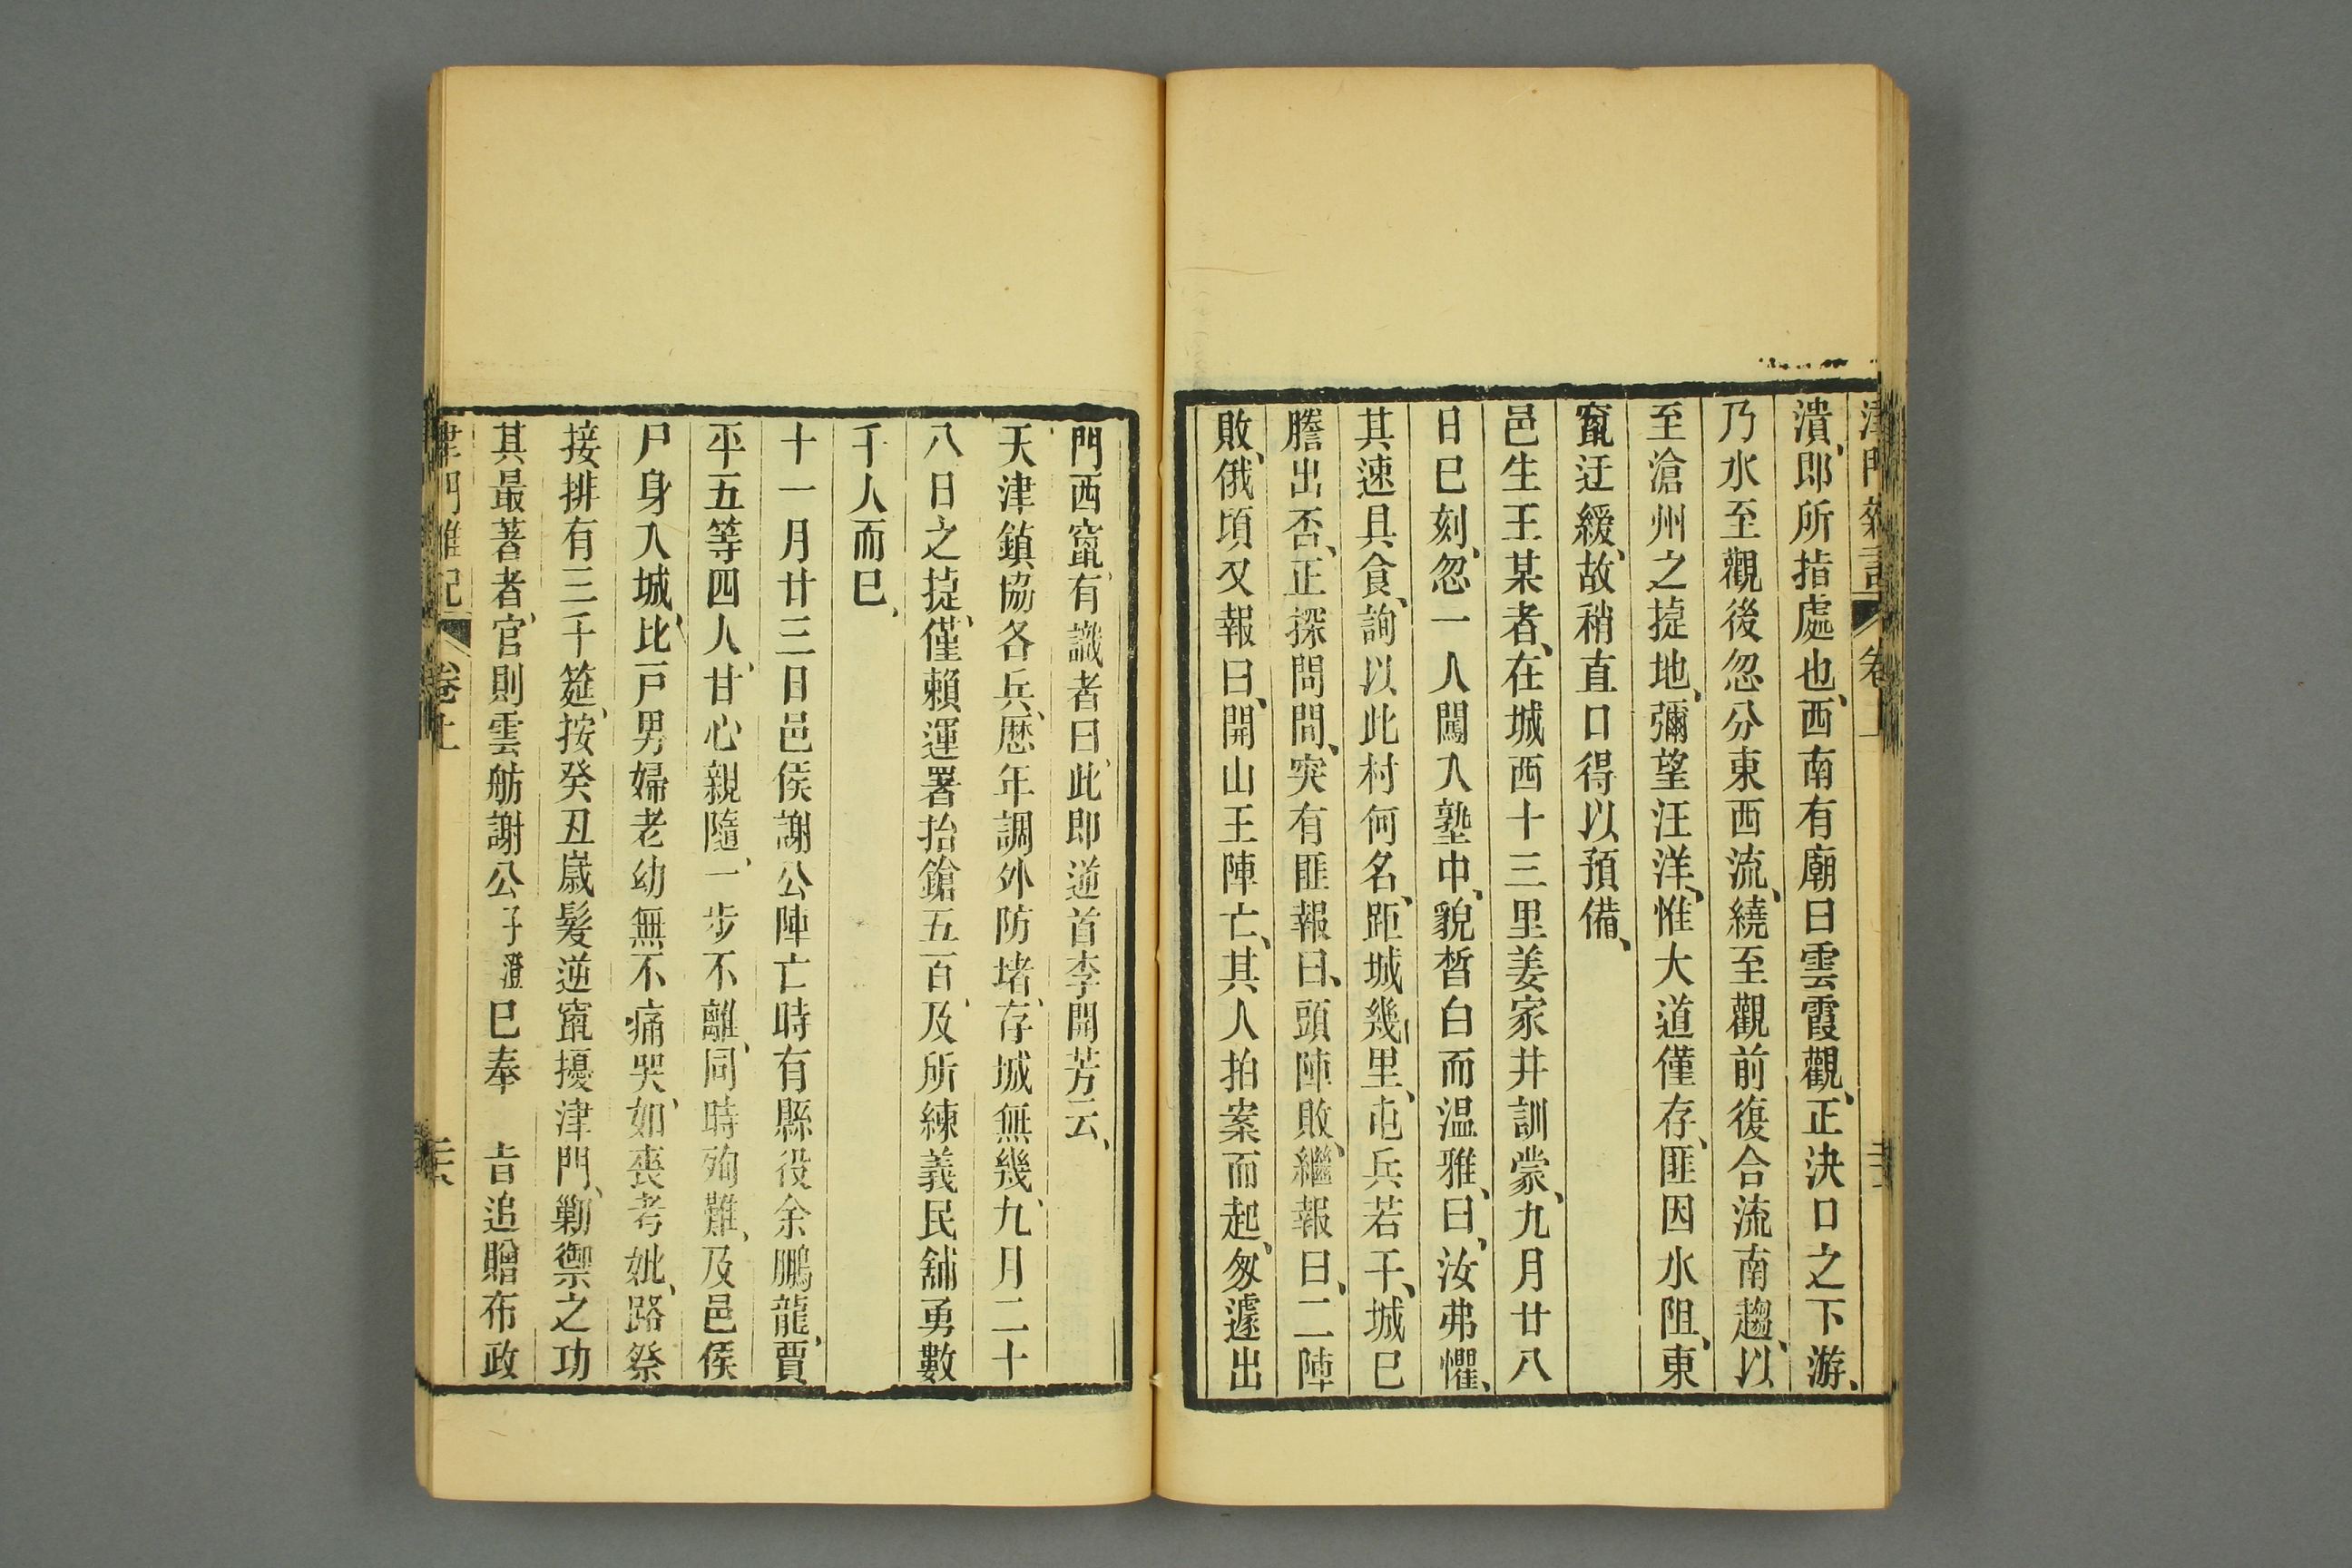 津門雜記 卷上
潰、卽所指處也、西南有廟曰雲霞觀、正決口之下游、
乃水至觀後忽分東西流、繞至觀前復合流南趨、以
至滄州之㨗地、彌望汪洋、惟大道僅存、匪因水阻、東
竄迂緩、故稍直口得以預備、
邑生王某者、在城西十三里姜家井訓蒙、九月廿八
日巳刻、忽一人闖入塾中、貌皙白而温雅、曰、汝弗懼、
其速具食、詢以此村何名、距城幾里、屯兵若干、城巳
謄出否、正探問間、突有匪報曰、頭陣敗、繼報曰、二陣
敗、俄頃又報曰、開山王陣亡、其人拍案而起、匆遽出
門西竄、有識者曰、此卽逆首李開芳云、
天津鎮協各兵、歷年調外防堵、存城無幾、九月二十
八日之㨗、僅賴運署抬鎗五百、及所練義民舖勇數
千人而巳、
十一月廿三日邑侯謝公陣亡時有縣役余鵬龍、賈
平五等四人、甘心親隨、一步不離、同時殉難、及邑侯
尸身入城、比戸男婦老幼無不痛哭、如喪考妣、路祭
接排有三千筵、按癸丑歲髮逆竄擾津門、勦禦之功
其最著者、官則雲舫謝公子澄巳奉 旨追贈布政
津門雜記 卷上 二六